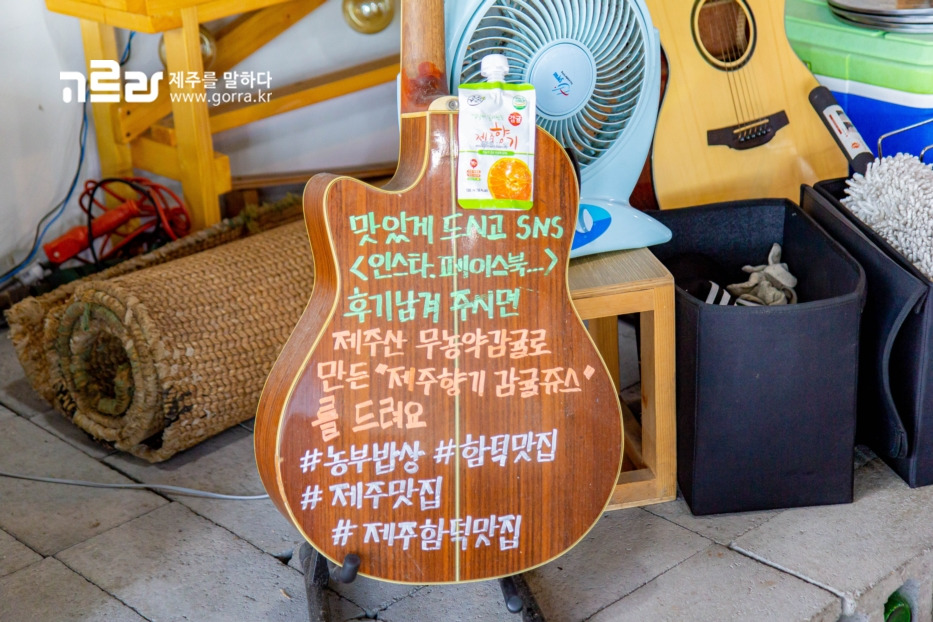 고라 제주를 말하다
www.gorra.kr
제주향기
맛있게 드시고 SNS
<인스타.페이스북...>
후기남겨 주시면
제주산 무농약감귤로
만든 "제주향기 감귤쥬스"
를 드려요
#농부밥상 #함덕맛집
#제주맛집
#제주함덕맛집